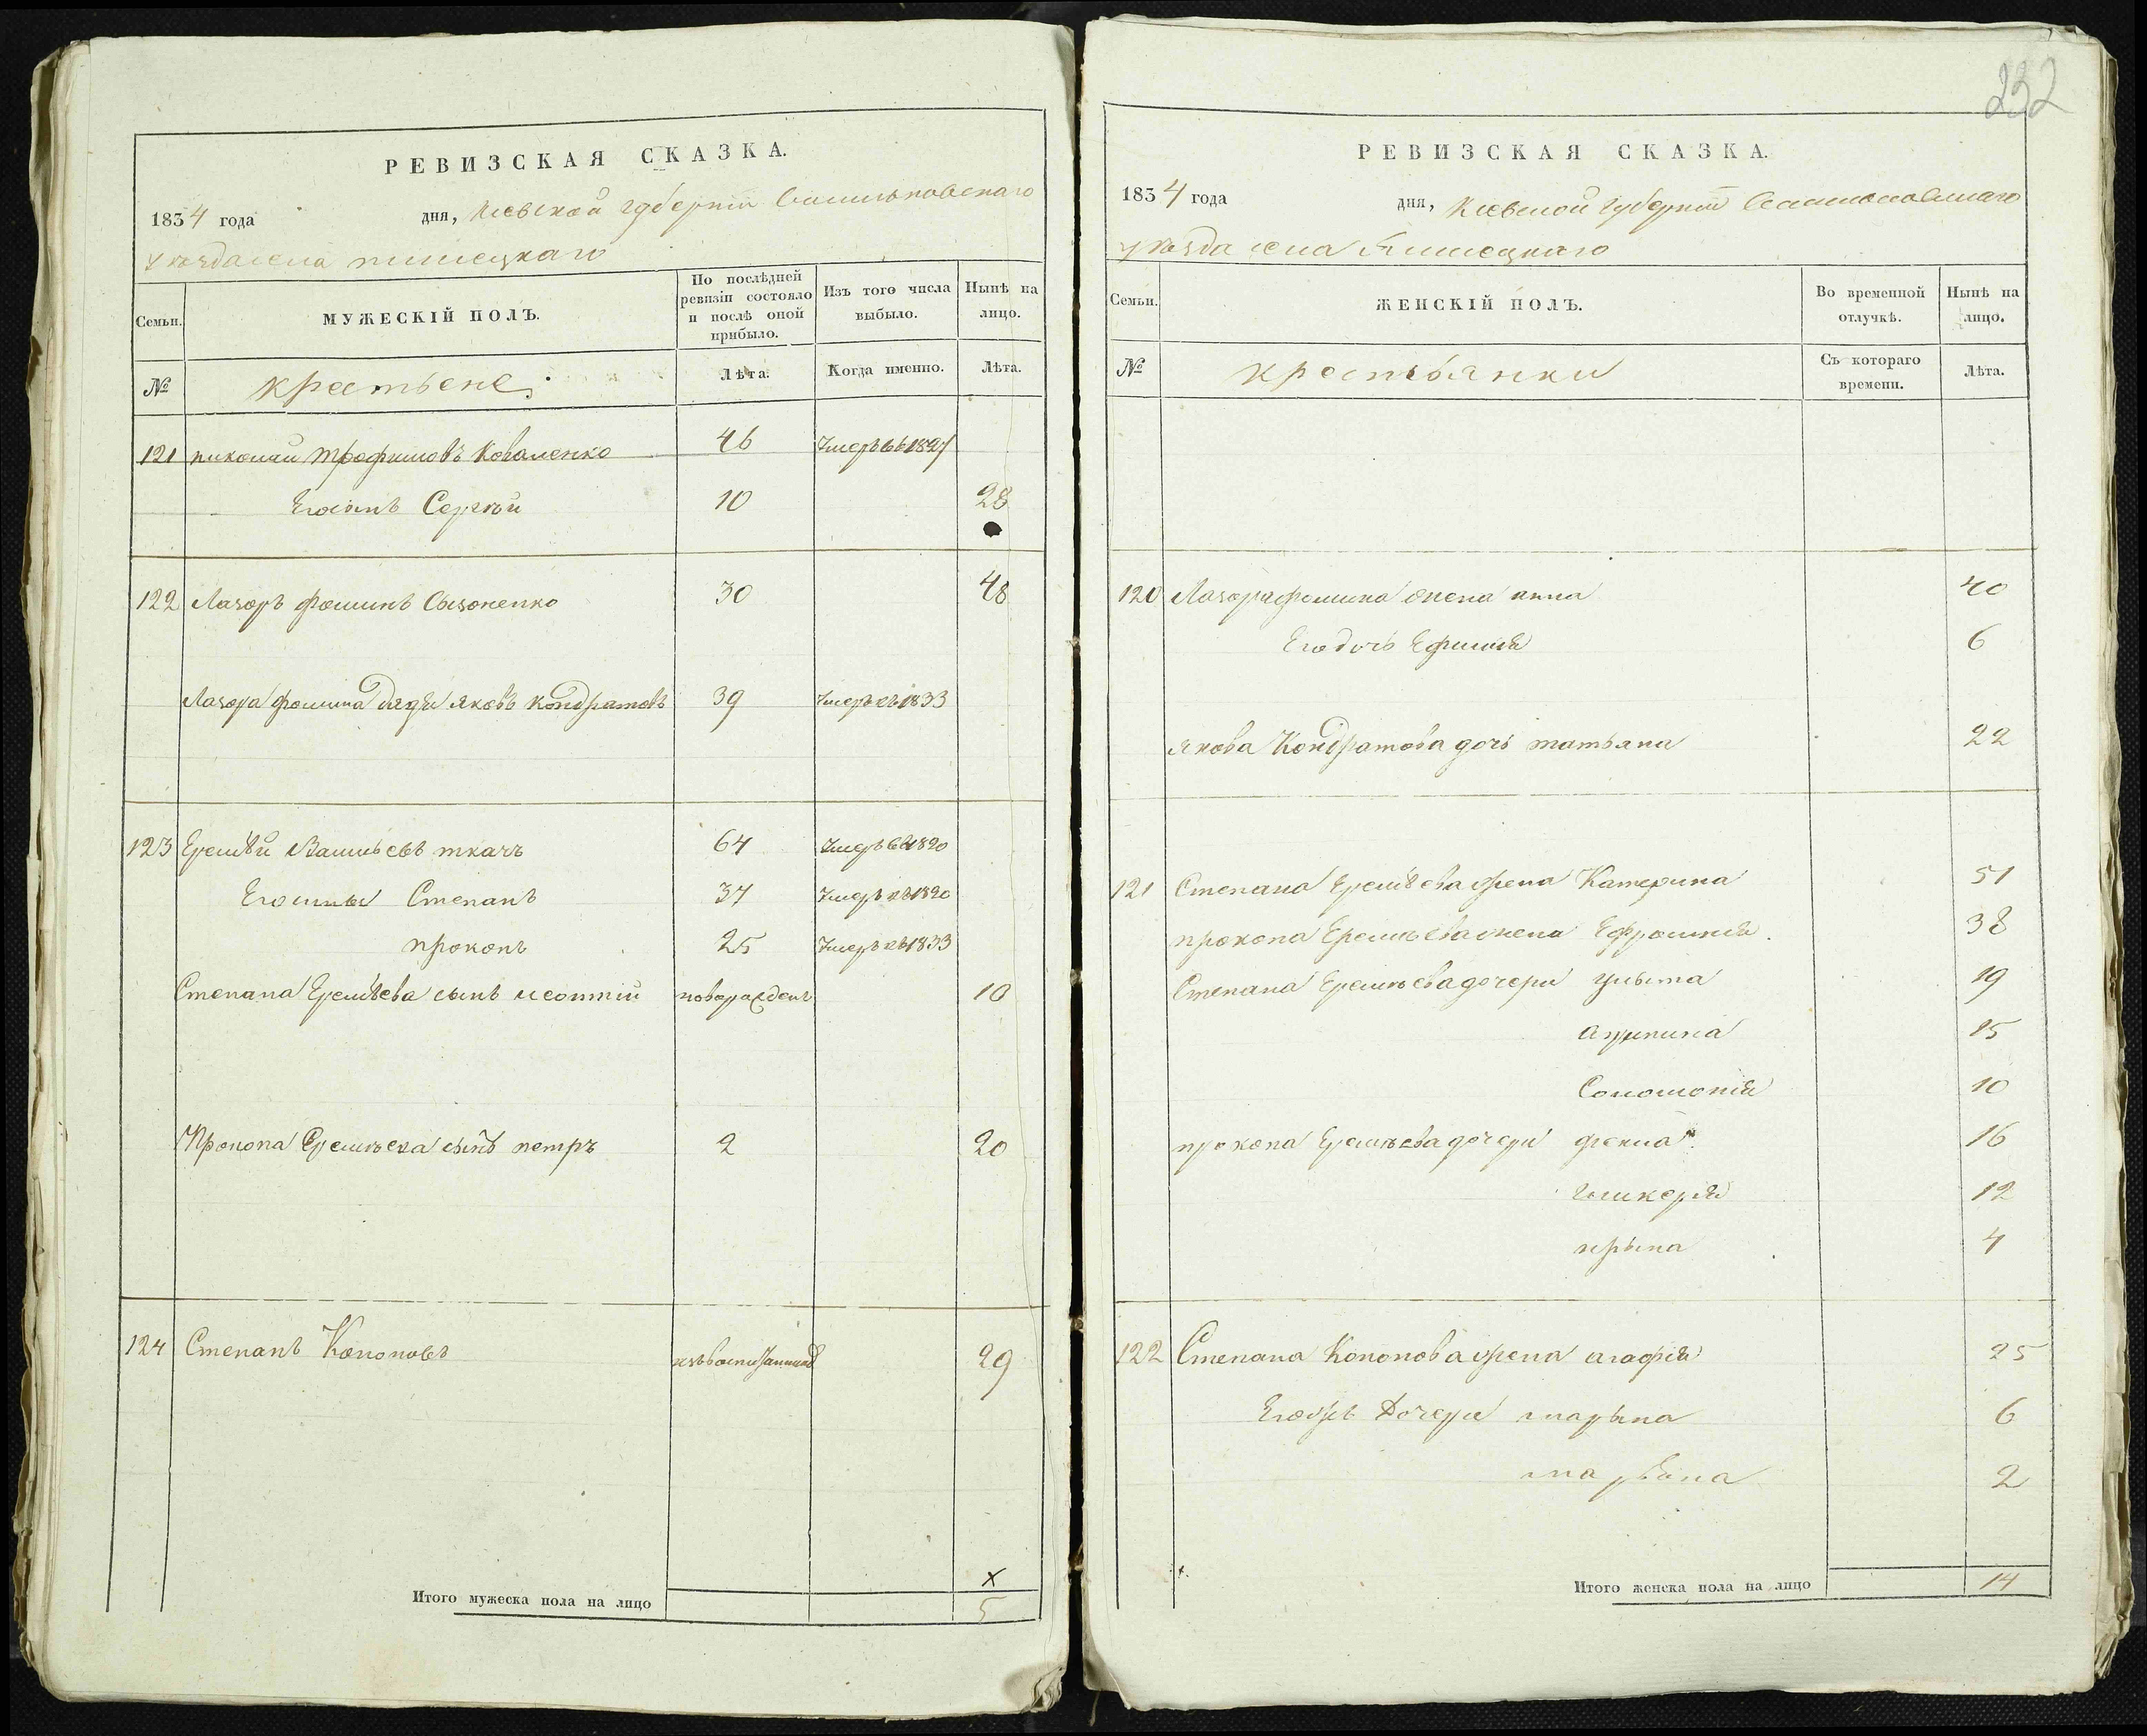 232
РЕВИЗСКАЯ СКАЗКА.
1834 года дня, Киевской губернии Васильковскаго
уѣзда села пинецкаго
Семьи. МУЖЕСКІЙ ПОЛЪ. По послѣдней ревизіи состояло и послѣ оной прибыло. Изъ того числа выбыло. Нынѣ на лицо.
№ крестьене Лѣта. Когда именно. Лѣта.
121 николай трофимовъ Коваленко 46 Умеръ въ 1827
Его сынъ Сергѣй 10 28
122 Лазоръ фоминъ Сызоненко 30 48
Лазора фомина дядя яковъ кондратовъ 39 Умеръ въ 1833
123 Еремѣй Васильевъ ткачъ 64 Умеръ въ 1820
Его сыны Степанъ 37 Умеръ въ 1820
прокопъ 25 Умеръ въ 1833
Степана Еремѣева сынъ леонтій новорожденъ 10
Прокопа Еремѣева сынъ петръ 2 20
124 Степанъ Кононовъ 29
Итого мужеска пола на лицо
х
5
РЕВИЗСКАЯ СКАЗКА.
1834 года дня, Киевской губернии Васильковскаго
уѣзда села Пинецкаго
Семьи. ЖЕНСКІЙ ПОЛЪ. Во временной отлучкѣ. Нынѣ на лицо.
№ крестьянки Съ котораго времени. Лѣта.
120 Лазора фомина жена анна 40
Его дочь Ефимія 6
якова Кондратова дочь татьяна 22
121 Степана Еремѣева жена Катерина 51
прокопа Еремѣева жена Ефросинія 38
Степана Еремѣева дочери улыта 19
агрипина 15
Соломонія 10
прокопа Еремѣева дочери фекла 16
гликерія 12
ирына 4
122 Степана Кононова жена агафія 25
Его же Дочери марына 6
2
Итого женска пола на лицо 14